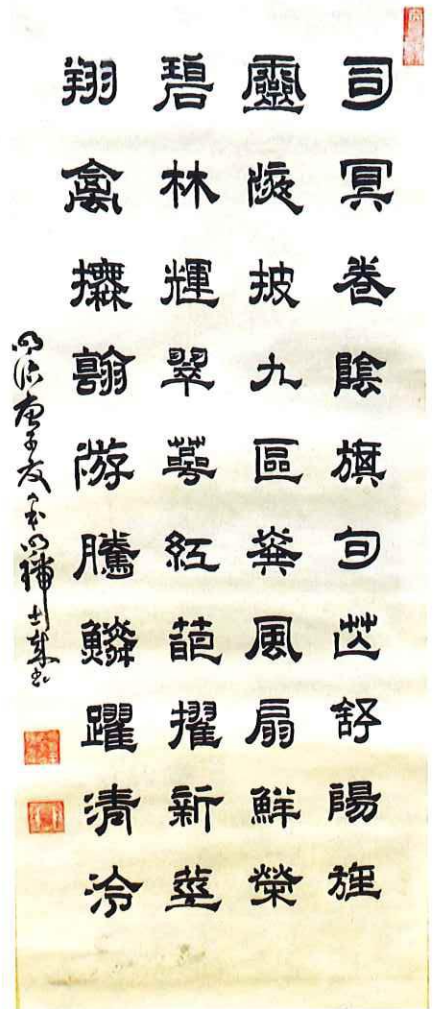 司冥卷陰旗句芒舒陽旌
靈液披九區光風扇鮮榮
碧林輝翠萼紅葩擢新莖
翔禽撫翰游騰鱗躍清泠
明治庚子